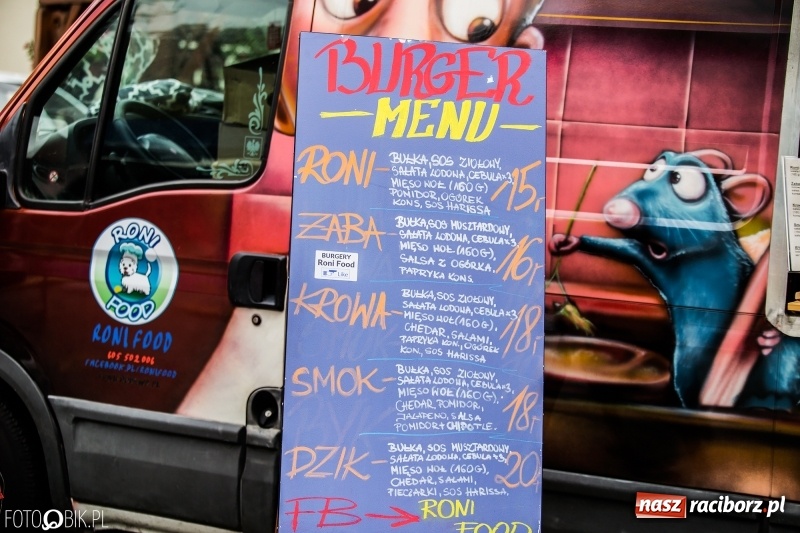 BURGER
MENU
RONI
BUŁKA, SOS ZIOŁOWY,
SAŁATA LODOWA, CEBULA×3,
MIĘSO WOŁ (160 G)
POMIDOR, OGÓREK
KONS, SOS HARISSA
15,
ŻABA
BUŁKA, SOS MUSZTARDOWY,
SAŁATA LODOWA, CEBULA×3,
MIĘSO WOŁ (160G),
SALSA Z OGÓRKA,
PAPRYKA KONS.
16,
BURGERY
Roni Food
Like
KROWA
BUŁKA, SOS ZIOŁOWY,
SAŁATA LODOWA, CEBULA×3,
MIĘSO WOŁ (160G),
CHEDAR, SALAMI,
PAPRYKA KON, OGÓREK
KON, SOS HARISSA
18,
SMOK
BUŁKA, SOS ZIOŁOWY
SAŁATA LODOWA, CEBULA×3,
MIĘSO WOŁ (160 G).
CHEDAR, POMIDOR,
JALAPENO, SALSA
POMIDOR + CHIPOTLE.
18,
DZIK
BUŁKA, SOS MUSZTARDOWY,
SAŁATA LODOWA, CEBULA×3,
MIĘSO WOŁ (160G),
CHEDAR, SALAMI,
PIECZARKI, SOS HARISSA,
20,
FB → RONI
FOOD
RONI
FOOD
RONI FOOD
605 502 006
FACEBOOK.PL/RONIFOOD
FOTOBIK.PL
nasz raciborz.pl